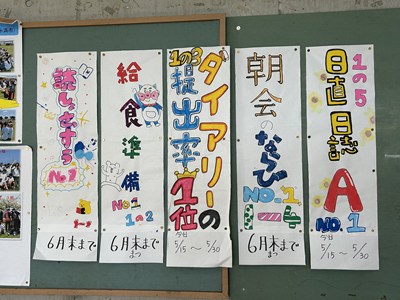 読しょきすう
No.1
6月末まで
給食準備
No.1
1の2
6月末まで
まつ
1の3
ダイアリーの
提出率
1位
5/15 〜 5/30
朝会のならび
NO.1
6月末まで
まつ
1の5
日直日誌
A
NO.1
5/15 〜 5/30